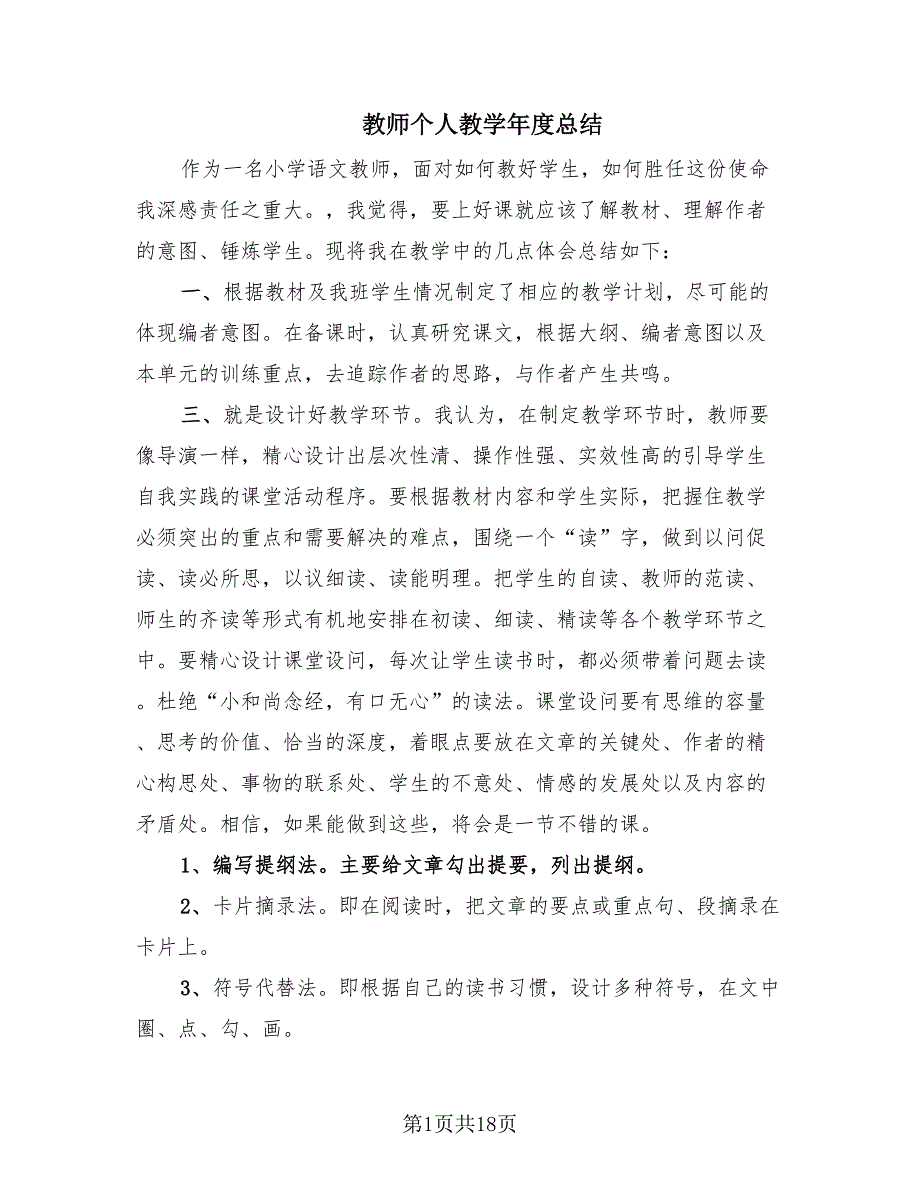 教师个人教学年度总结
作为一名小学语文教师，面对如何教好学生，如何胜任这份使命
我深感责任之重大。，我觉得，要上好课就应该了解教材、理解作者
的意图、锤炼学生。现将我在教学中的几点体会总结如下：
一、根据教材及我班学生情况制定了相应的教学计划，尽可能的
体现编者意图。在备课时，认真研究课文，根据大纲、编者意图以及
本单元的训练重点，去追踪作者的思路，与作者产生共鸣。
三、就是设计好教学环节。我认为，在制定教学环节时，教师要
像导演一样，精心设计出层次性清、操作性强、实效性高的引导学生
自我实践的课堂活动程序。要根据教材内容和学生实际，把握住教学
必须突出的重点和需要解决的难点，围绕一个“读”字，做到以问促
读、读必所思，以议细读、读能明理。把学生的自读、教师的范读、
师生的齐读等形式有机地安排在初读、细读、精读等各个教学环节之
中。要精心设计课堂设问，每次让学生读书时，都必须带着问题去读
。杜绝“小和尚念经，有口无心”的读法。课堂设问要有思维的容量
、思考的价值、恰当的深度，着眼点要放在文章的关键处、作者的精
心构思处、事物的联系处、学生的不意处、情感的发展处以及内容的
矛盾处。相信，如果能做到这些，将会是一节不错的课。
1、编写提纲法。主要给文章勾出提要，列出提纲。
2、卡片摘录法。即在阅读时，把文章的要点或重点句、段摘录在
卡片上。
3、符号代替法。即根据自己的读书习惯，设计多种符号，在文中
圈、点、勾、画。
第1页共18页